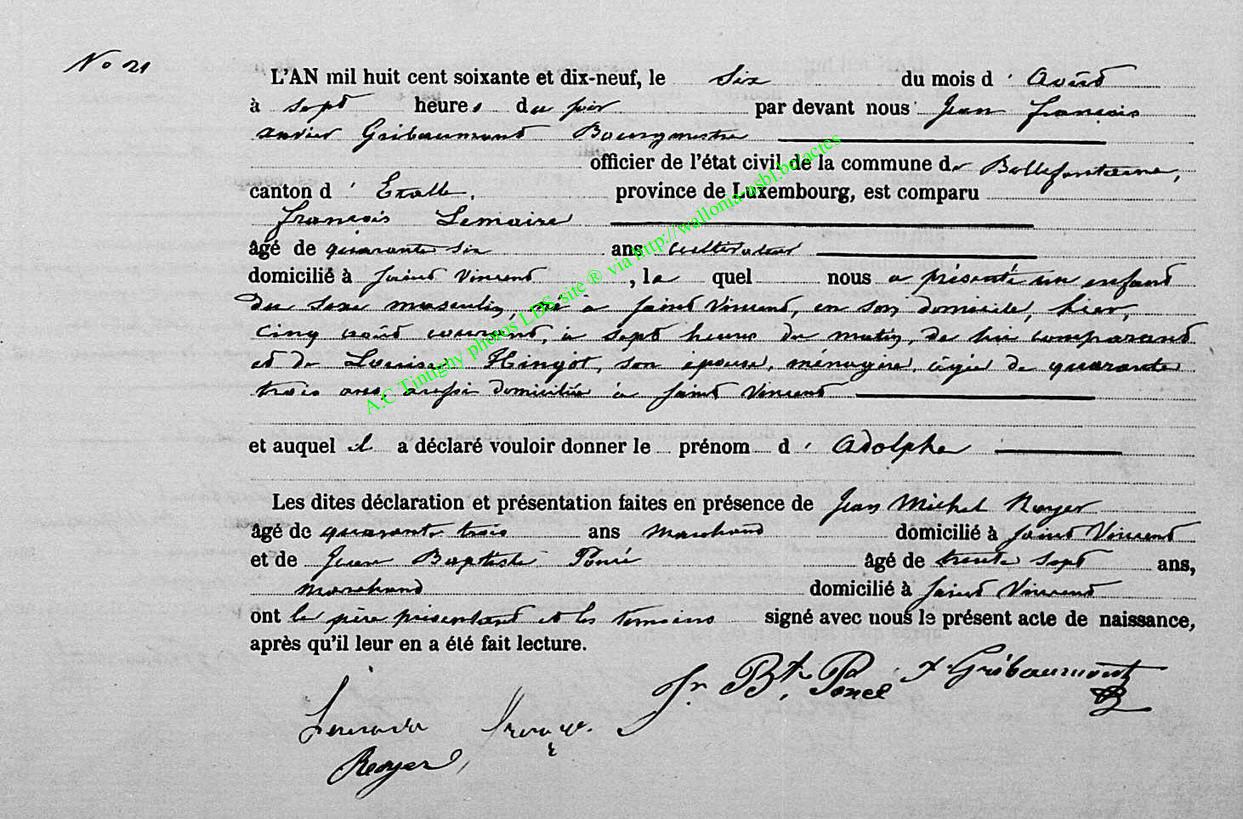 No 21
L'AN mil huit cent soixante et dix-neuf, le six du mois d'Août
à sept heures du soir par devant nous Jean François
Xavier Gribaumont Bourgmestre
officier de l'état civil de la commune de Bellefontaine,
canton d'Etalle, province de Luxembourg, est comparu
François Lemaire
âgé de quarante six ans cultivateur
domicilié à Saint Vincent, le quel nous a présenté un enfant
du sexe masculin, né à Saint Vincent, en son domicile, hier,
cinq août courant, à sept heures du matin, de lui comparant
et de Louise Hingot, son épouse, ménagère, âgée de quarante
trois ans, aussi domiciliée à Saint Vincent
et auquel il a déclaré vouloir donner le prénom d'Adolphe
Les dites déclaration et présentation faites en présence de Jean Michel Royer
âgé de quarante trois ans marchand domicilié à Saint Vincent
et de Jean Baptiste Poncé âgé de trente sept ans,
marchand domicilié à Saint Vincent
ont le père présentant et les témoins signé avec nous le présent acte de naissance,
après qu'il leur en a été fait lecture.
Jn Bte Poncé X Gribaumont
Royer
A.C Tintigny photos LDS site ® via http://wallonia-asbl.be/actes